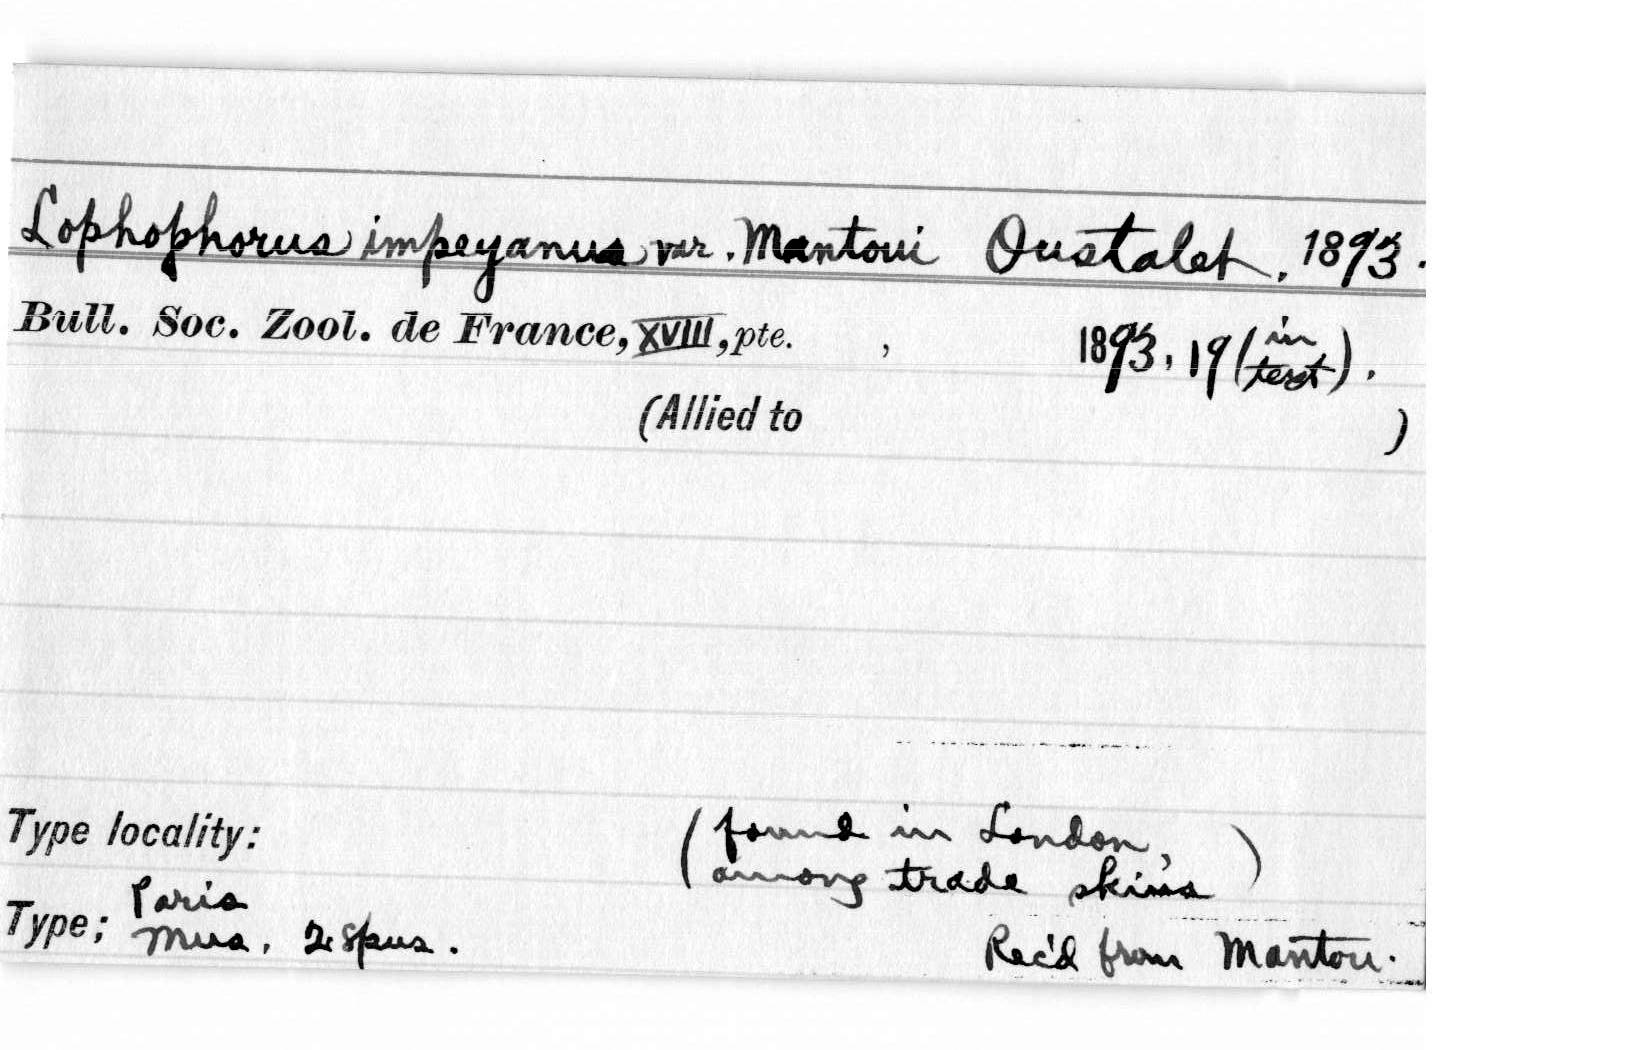 Lophophorus impeyanus var. Mantoui Oustalet, 1893.
Bull. Soc. Zool. de France, XVIII, pte. , 1893, 19 (in text).
(Allied to )
Type locality: (found in London, among trade skins)
Type; Paris Mus. 2 spns. Rec'd from Mantou.